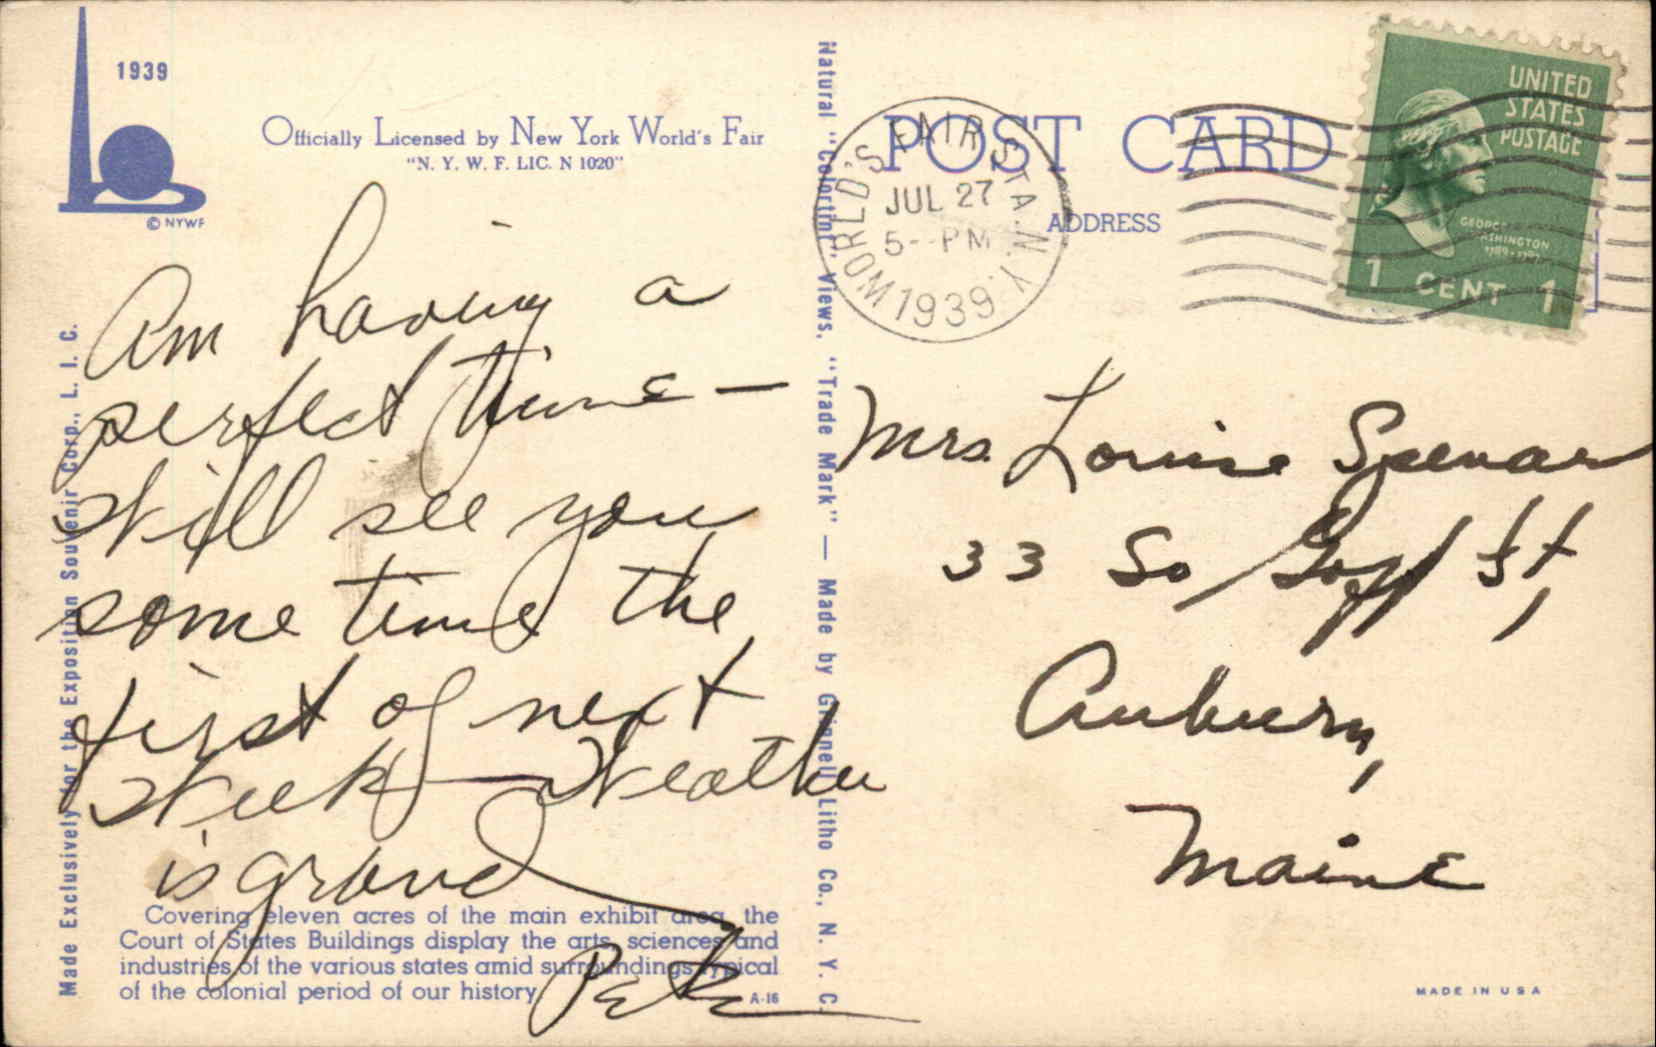 1939
© NYWF
Officially Licensed by New York World's Fair
"N. Y. W. F. LIC. N 1020"
Made Exclusively for the Exposition Souvenir Corp., L. I. C.
Am having a
perfect time —
Will see you
some time the
first of next
Week — Weather
is grand
Pete
Covering eleven acres of the main exhibit area, the
Court of States Buildings display the arts, sciences and
industries of the various states amid surroundings typical
of the colonial period of our history.
A-16
Natural "Colortint" Views, "Trade Mark" — Made by Grinnell Litho Co., N. Y. C.
POST CARD
ADDRESS
WORLD'S FAIR STA. N.Y.
JUL 27
5-- PM
1939
UNITED
STATES
POSTAGE
GEORGE
WASHINGTON
1789-1797
1 CENT 1
Mrs. Louise
33 So St,
Auburn,
Maine
MADE IN U S A